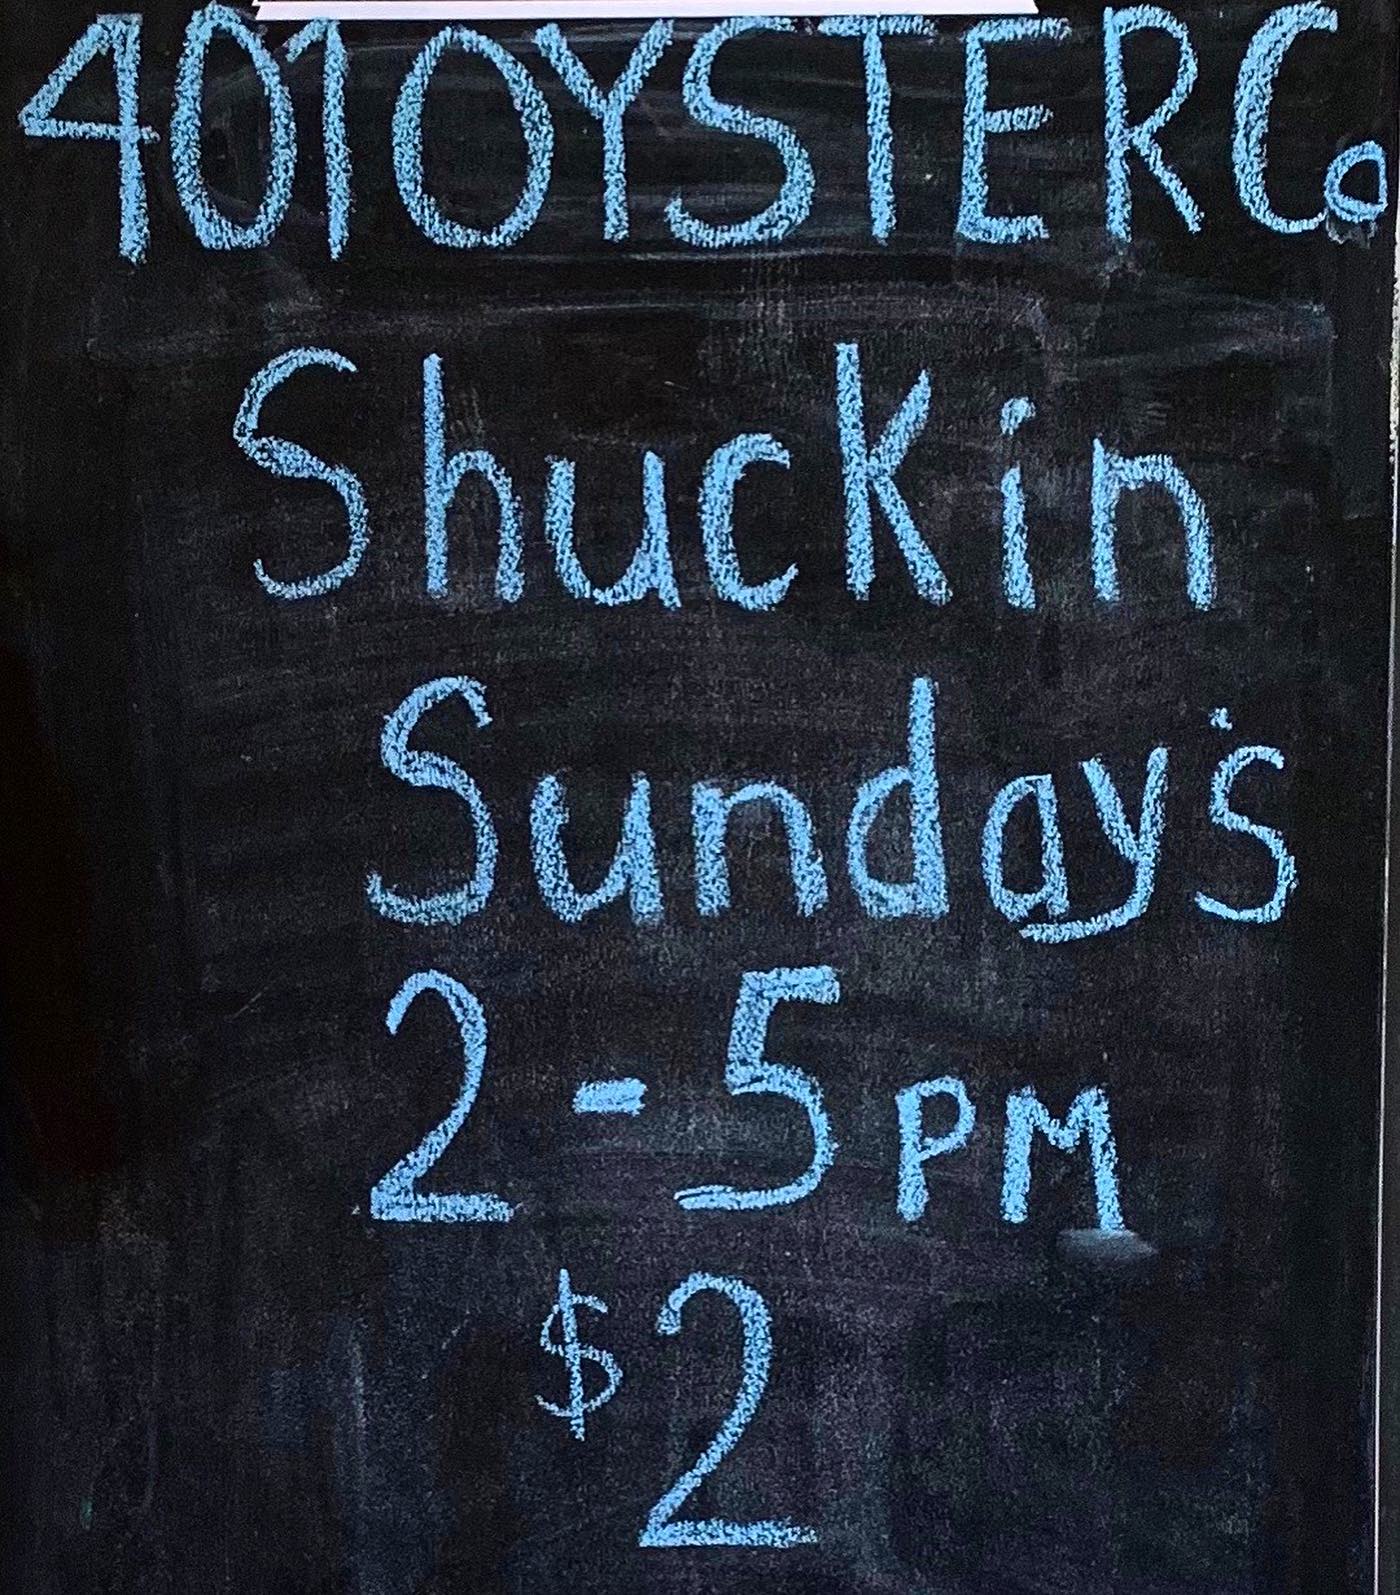 401 OYSTER Co
Shuckin
Sunday's
2-5 PM
$2